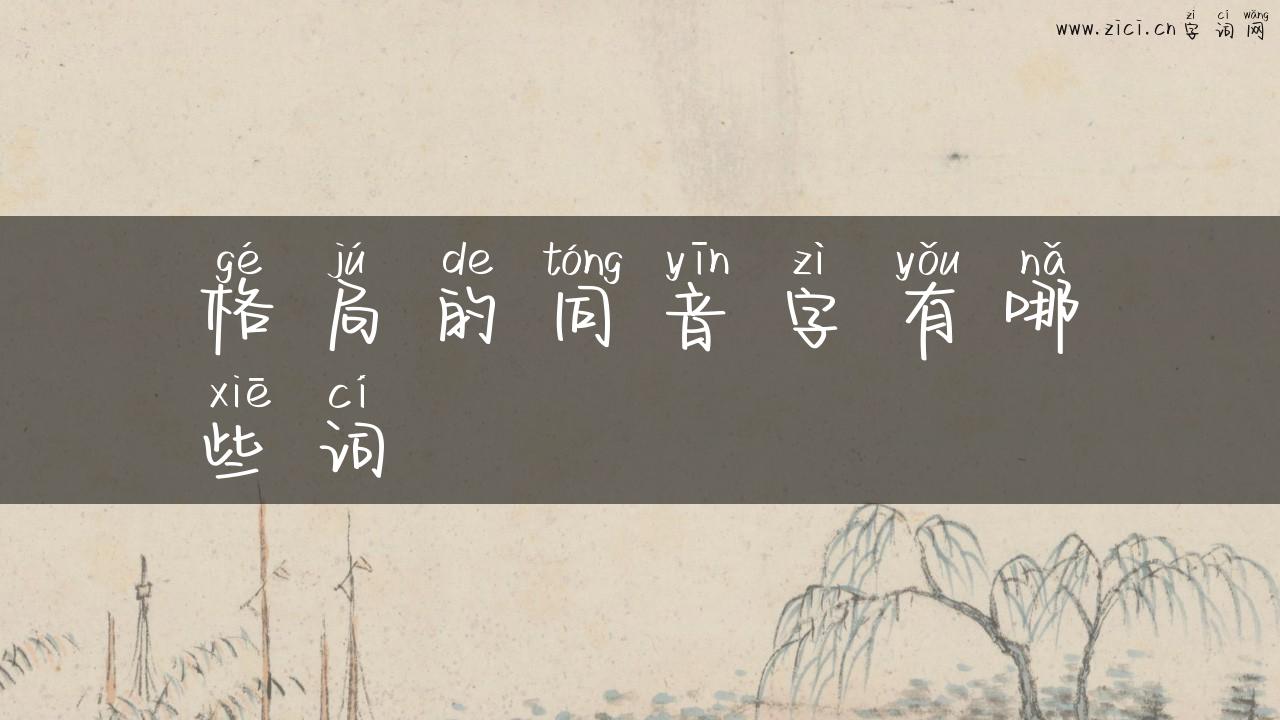 zì cí wǎng
www.zici.cn 字词网
gé jú de tóng yīn zì yǒu nǎ
格局的同音字有哪
xiē cí
些词